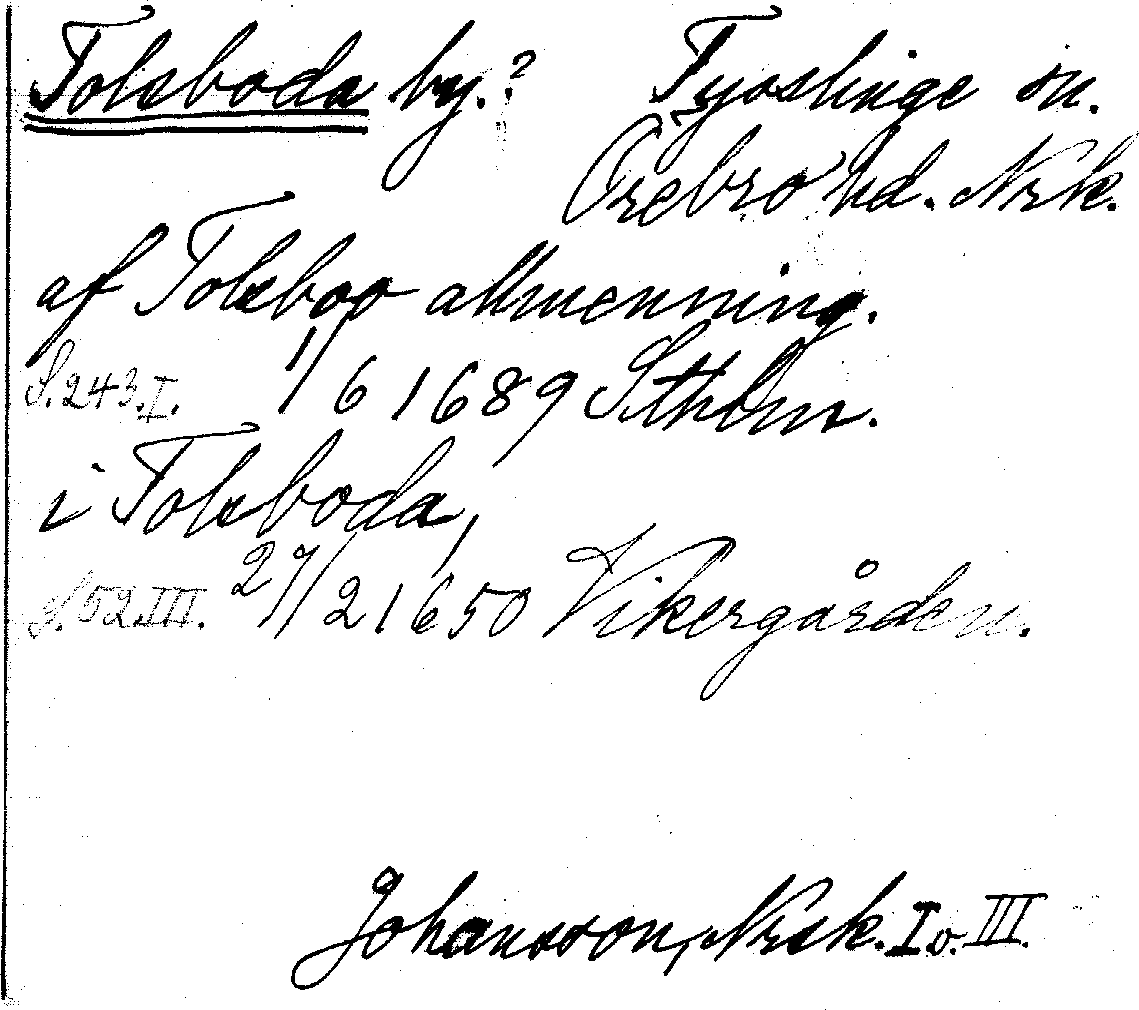 Tolsboda by.? Tysslinge sn.
Örebro hd. Nrk.
af Tolsboo allmenning.
S. 243. I. 1/6 1689 Sthlm.
i Tolsboda,
S. 52. III. 27/2 1650 Vikergården.
Johansson, Nrsk. I o. III.